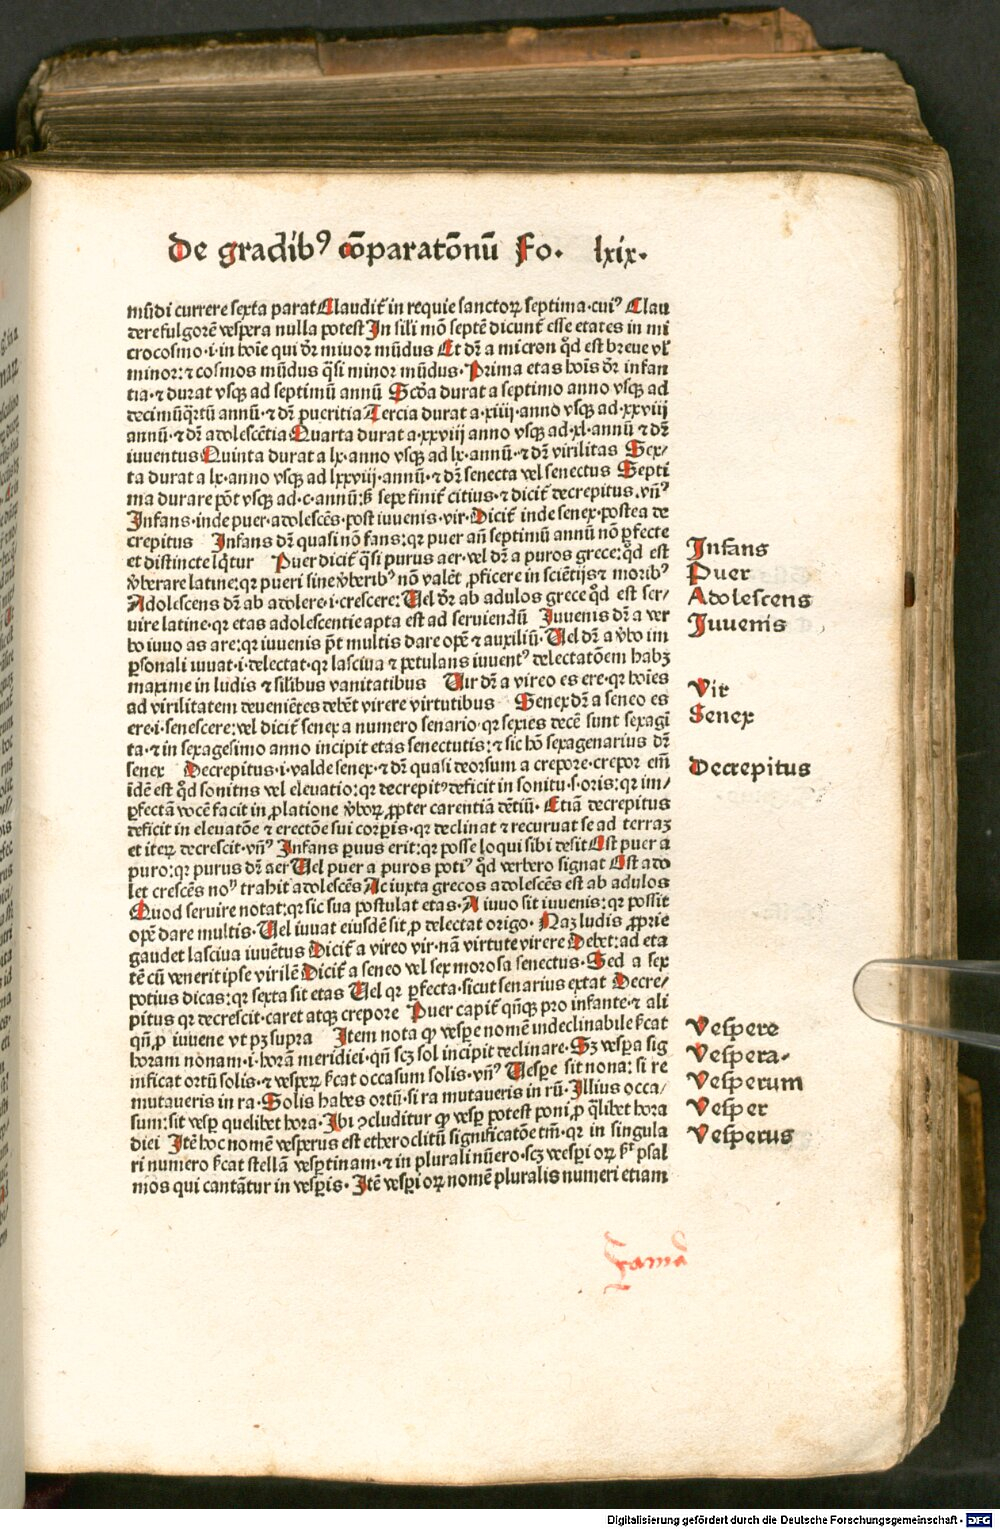 De gradibꝰ cōparatōnū Fo. lxix.
mūdi currere sexta parat Claudit᷑ in requie sanctoꝝ septima.cuiꝰ Clau
dere fulgorē vespera nulla potest In sili mō septē dicunt᷑ esse etates in mi
crocosmo.i.in hoīe qui dr̄ minor mūdus Et dr̄ a micron qd̄ est breue vl᷑
minor:⁊ cosmos mūdus q̄si minor mūdus.Prima etas hoīs dr̄ infan
tia.⁊ durat vsqꝫ ad septimū annū Scd̄a durat a septimo anno vsqꝫ ad
decimūq̄rtū annū.⁊ dr̄ pueritia Tercia durat a.xiiij.anno vsqꝫ ad.xxviij
annū.⁊ dr̄ adolescētia Quarta durat a.xxviij anno vsqꝫ ad.xl.annū ⁊ dr̄
iuuentus Quinta durat a lx.anno vsqꝫ ad lx.annū.⁊ dr̄ virilitas Sex/
ta durat a lx.anno vsqꝫ ad lxxviij.annū.⁊ dr̄ senecta vel senectus Septi
ma durare pōt vsqꝫ ad.c.annū:sꝫ sepe finit᷑ citius.⁊ dicit᷑ decrepitus.vn̄ꝰ
Infans.inde puer.adolescēs.post iuuenis.vir.Dicit᷑ inde senex.postea de
crepitus Infans dr̄ quasi nō fans:qr puer an̄ septimū annū nō ꝑfecte
et distincte lq̄tur Puer dicit᷑ q̄si purus aer.vel dr̄ a puros grece:qd̄ est
v̄berare latine:qr pueri sine v̄beribꝰ nō valēt ꝓficere in sciētijs ⁊ moribꝰ
Adolescens dr̄ ab adolere.i.crescere:Uel dr̄ ab adulos grece qd̄ est ser/
uire latine.qr etas adolescentie apta est ad seruiendū Iuuenis dr̄ a ver
bo iuuo as are:qr iuuenis pn̄t multis dare opē ⁊ auxiliū.Uel dr̄ a v̄bo im
ꝑsonali iuuat.i.delectat.qr lasciua ⁊ petulans iuuentꝰ delectatōem habꝫ
maxime in ludis ⁊ silibus vanitatibus Uir dr̄ a vireo es ere.qr hoīes
ad virilitatem deueniētes debēt virere virtutibus Senex dr̄ a seneo es
ere.i.senescere:vel dicit᷑ senex a numero senario.qr sexies decē sunt sexagī
ta.⁊ in sexagesimo anno incipit etas senectutis:⁊ sic hō sexagenarius dr̄
senex Decrepitus.i.valde senex.⁊ dr̄ quasi deorsum a crepore.crepor em̄
idē est qd̄ sonitus vel eleuatio:qr decrepitꝰ deficit in sonitu.s.oris:qr im/
ꝑfectā vocē facit in ꝓlatione v̄boꝝ ꝓpter carentiā dētiū.Etiā decrepitus
deficit in eleuatōe ⁊ erectōe sui corꝑis.qr declinat ⁊ recuruat se ad terraꝫ
et iteꝝ decrescit.vn̄ꝰ Infans paruus erit:qr posse loqui sibi desit Est puer a
puro:qr purus dr̄ aer Uel puer a puros potiꝰ qd̄ verbero signat Est ado
let crescēs noꝰ trahit adolescēs Ac iuxta grecos adolescēs est ab adulos
Quod seruire notat:qr sic sua postulat etas.A iuuo sit iuuenis:qr possit
opē dare multis.Uel iuuat eiusdē sit ꝓ delectat origo.Naꝫ ludis ꝓprie
gaudet lasciua iuuētus Dicit᷑ a vireo vir.nā virtute virere Debet:ad eta
tē cū venerit ipse virilē Dicit᷑ a seneo vel sex morosa senectus.Sed a sex
potius dicas:qr sexta sit etas Uel qr ꝑfecta.sicut senarius extat Decre/
pitus qr decrescit.caret atqꝫ crepore Puer capit᷑ qn̄qꝫ pro infante.⁊ ali
qn̄.ꝓ iuuene vt pꝫ supra Item nota ꝙ vespe nomē indeclinabile sc̄cat
horam nonam.i.horā meridiei.qn̄ scꝫ sol incipit declinare.Sꝫ vesꝑa sig
nificat ortū solis.⁊ vesꝑeꝝ sc̄cat occasum solis.vn̄ꝰ Uespe sit nona: si re
mutaueris in ra.Solis habes ortū.si ra mutaueris in rū.Illius occa/
sum:sit vesꝑ quelibet hora.Ibi ꝯcluditur ꝙ vesꝑ potest poni ꝓ q̄libet hora
diei Itē hoc nomē vesperus est etheroclitū significatōe tm̄.qr in singula
ri numero sc̄cat stellā vesꝑtinam.⁊ in plurali nūero.scꝫ vesꝑi oꝝ sc̄t psal
mos qui cantātur in vesꝑis.Itē vesꝑi oꝝ nomē pluralis numeri etiam
Infans
Puer
Adolescens
Juuenis
Vir
Senex
Decrepitus
Vespere
Vespera.
Vesperum
Vesper
Vesperus
Digitalisierung gefördert durch die Deutsche Forschungsgemeinschaft - DFG